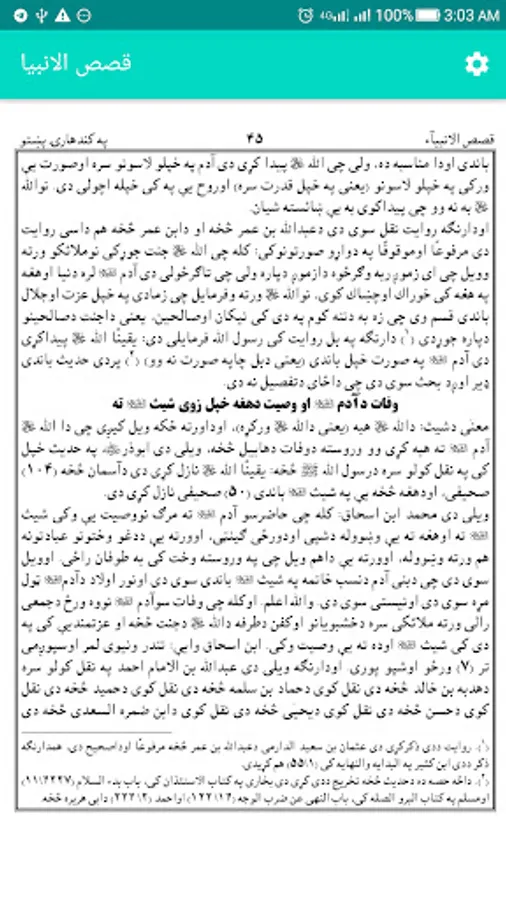 4G 100% 3:03 AM
قصص الانبیا
قصص الانبیآء ۴۵ په کندهارۍ پښتو
باندی اودا مناسبه ده، ولی چی الله ﷻ پیدا کړی دی آدم په خپلو لاسونو سره اوصورت یې
ورکی په خپلو لاسونو (یعنی په خپل قدرت سره) اوروح یې په کی خپله اچولی دی. نوالله
ﷻ به نه وو چی پیداکوی به یې ښائسته شیان.
اودارنګه روایت نقل سوی دی دعبدالله بن عمر څخه او دابن عمر څخه هم داسی روایت
دی مرفوعًا اوموقوفًا په دواړو صورتونوکی: کله چی الله ﷻ جنت جوړکی نوملائکو ورته
وویل چی ای زموږ ربه وګرځوه دازموږ دپاره ولی چی تاګرځولی دی آدم ﷷ لره دنیا اوهغه
په هغه کی خوراك اوچښاك کوی. نوالله ﷻ ورته وفرمایل چی زمادی په خپل عزت اوجلال
باندی قسم وی چی زه به دننه کوم په دی کی نیکان اوصالحین. یعنی داجنت دصالحینو
دپاره جوړدی (۱) دارنګه په بل روایت کی رسول الله فرمایلی دی: یقینًا الله ﷻ پیداکړی
دی آدم په صورت خپل باندی (یعنی دبل چاپه صورت نه وو) (۲) پردی حدیث باندی
ډیر اوږد بحث سوی دی چی داځای دتفصیل نه دی.
وفات دآدم او وصیت دهغه خپل زوی شیث ته
معنٰی دشیث: دالله ﷻ هبه (یعنی دالله ﷻ ورکړه)، اوداورته ځکه ویل کیږی چی دا الله ﷻ
آدم ته هبه کړی وو وروسته دوفات دهابیل څخه، ویلی دی ابوذر په حدیث خپل
کی په نقل کولو سره درسول الله ﷺ څخه: یقینًا الله ﷻ نازل کړی دی دآسمان څخه (۱۰۴)
صحیفی، اودهغه څخه یې په شیث باندی (۵۰) صحیفی نازل کړی دی.
ویلی دی محمد ابن اسحاق: کله چی حاضرسو آدم ته مرګ نووصیت یې وکی شیث
ته اوهغه ته یې وښووله دشپی اودورځی ګینټی، اوورته یې ددغو وختونو عبادتونه
هم ورته وښووله، اوورته یې داهم ویل چی په وروسته وخت کی به طوفان راځی. اوویل
سوی دی چی دبنی آدم دنسب خاتمه په شیث باندی سوی دی اونور اولاد دآدم ټول
مړه سوی دی اونیستی سوی دی. والله اعلم. اوکله چی وفات سوآدم نووه ورځ دجمعی
راټلی ورته ملائکی سره دخشبویانو اوکفن دطرفه دالله ﷻ دجنت څخه او عزتمندیې کی په
دی کی شیث اوده ته یې وصیت وکی. ابن اسحاق وایې: تندر ونیوی لمر اوسپوږمی
تر (۷) ورځو اوشپو پوری. اودارنګه ویلی دی عبدالله بن الامام احمد په نقل کولو سره
دهدبه بن خالد څخه دی نقل کوی دحماد بن سلمه څخه دی نقل کوی دحمید څخه دی نقل
کوی دحسن څخه دی نقل کوی دیحیٰی څخه دی نقل کوی دابن ضمره السعدی څخه دی
(۱). روایت ددی ذکرکړی دی عثمان بن سعید الدارمی دعبدالله بن عمر څخه مرفوعًا اوداصحیح دی. همدارنګه
ذکر ددی ابن کثیر په البدایه والنهایه کی (۵۵/۱) هم کړیدی.
(۲). داڅه حصه ده دحدیث څخه تخریج ددی کړی دی بخاری په کتاب الاستئذان کی، باب بدء السلام (۶۲۲۷/۱۱)
اومسلم په کتاب البرو الصله کی، باب النهی عن ضرب الوجه